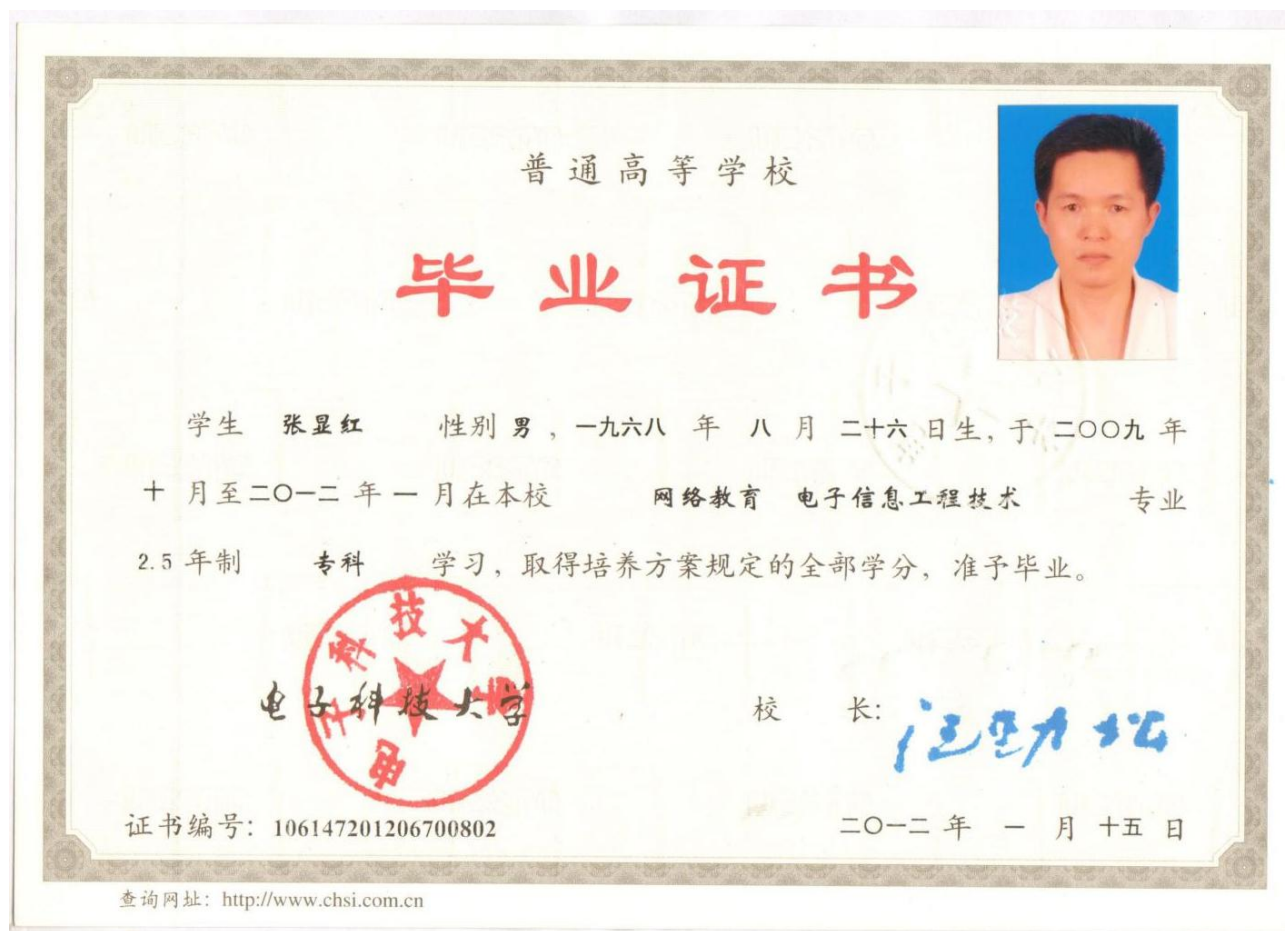 普通高等学校
毕业证书
学生 张显红 性别 男，一九六八 年 八 月 二十六 日生，于 二〇〇九 年
十 月至 二〇一二 年 一 月在本校 网络教育 电子信息工程技术 专业
2.5 年制 专科 学习，取得培养方案规定的全部学分，准予毕业。
电子科技大学
电子科技大学
校 长：汪劲松
证书编号：106147201206700802
二〇一二 年 一 月 十五 日
查询网址：http://www.chsi.com.cn